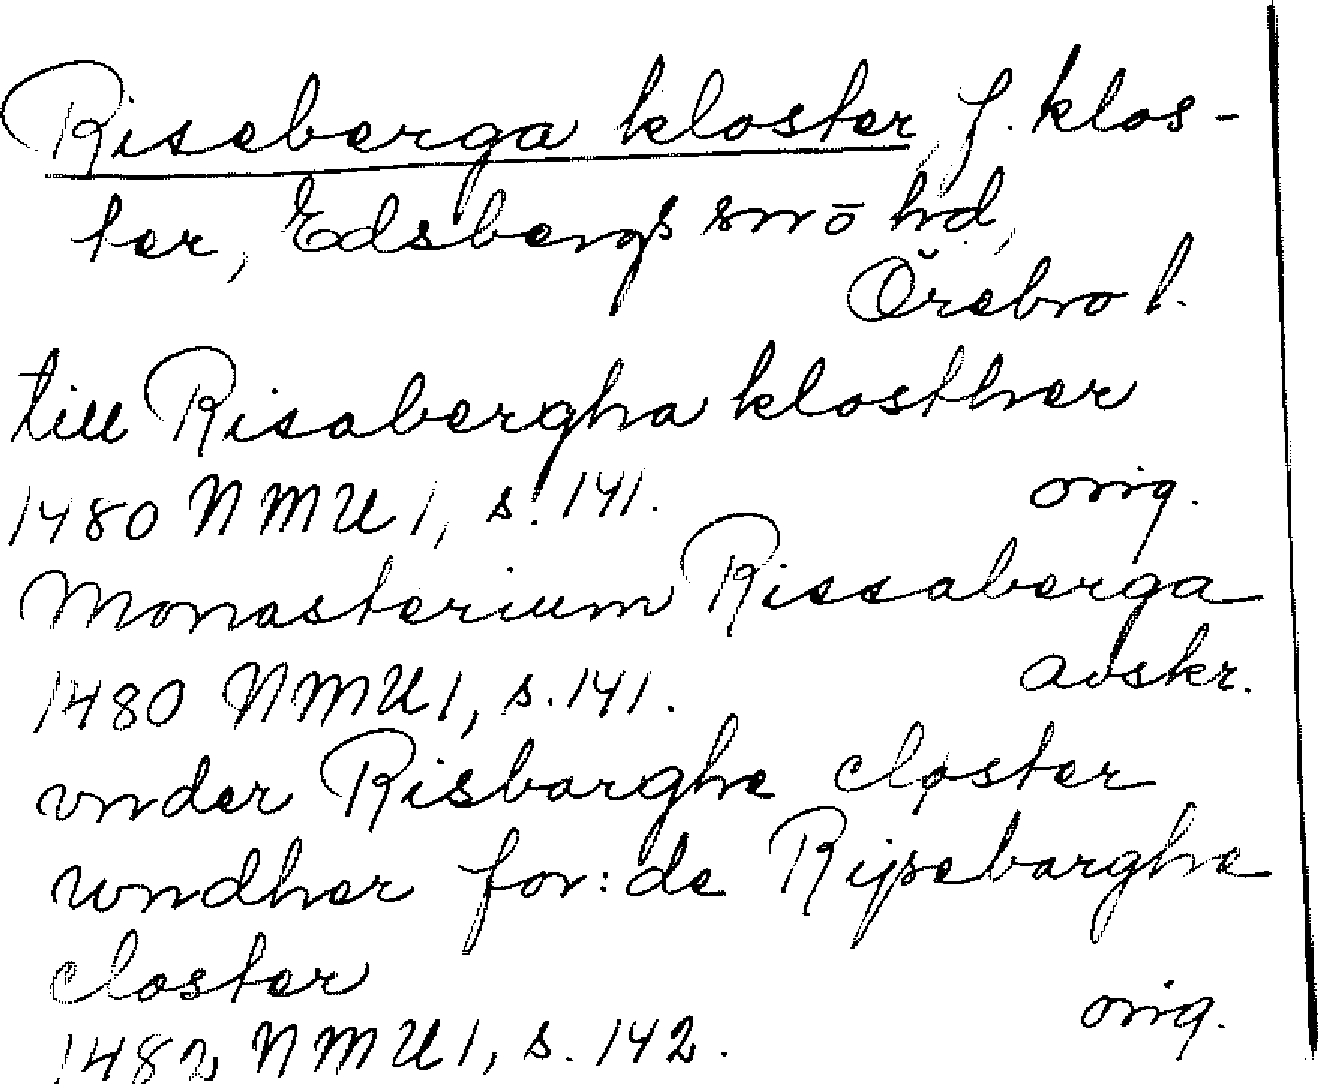 Riseberga kloster f. klos-
ter, Edsbergs snö hd,
Örebro l.
till Risabergha closther
1480 NMU 1, s. 141. orig.
Monasterium Rissaberga
1480 NMU 1, s. 141. avskr.
vnder Risbarghe closter
wndher for:de Rijsebarghe
closter
1482 NMU 1, s. 142. orig.